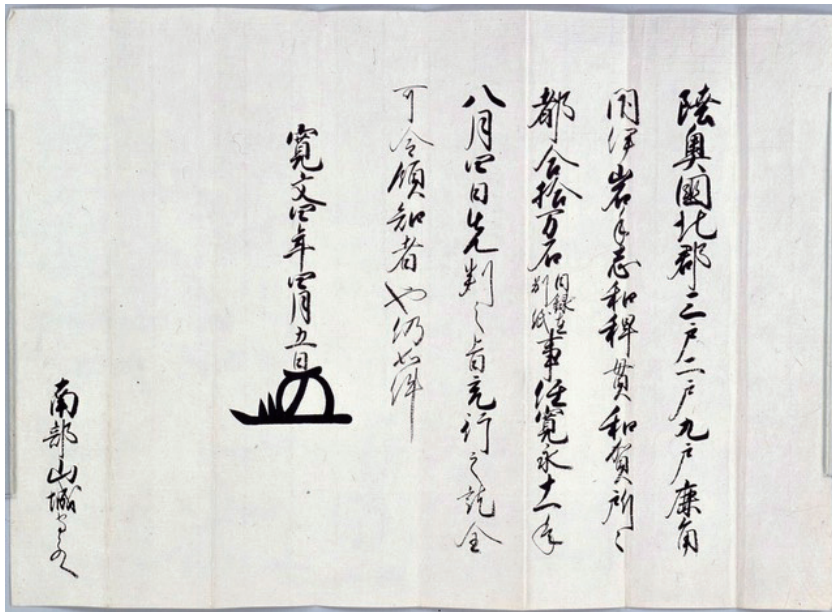 陸奥國北郡三戸二戸九戸鹿角
閇伊岩手志和稗貫和賀所々
都合拾万石目録在別紙事任寛永十一年
八月四日先判之旨充行之訖全
可令領知者也仍如件
寛文四年四月五日
南部山城守とのへ